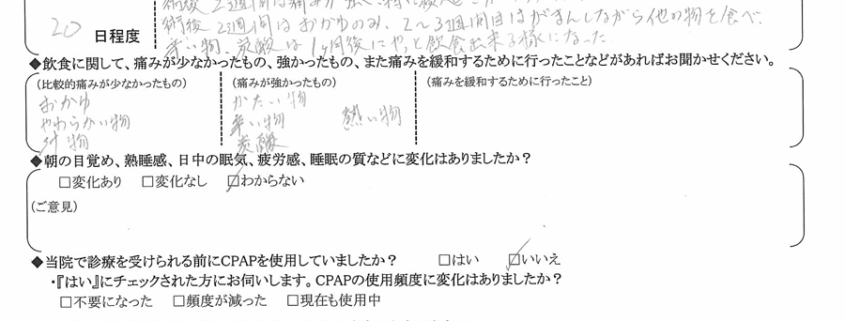 術後2週間は
術後2週間はおかゆのみ、2〜3週間目はがまんしながら他の物を食べ、
20 日程度
辛い物、炭酸は1ヶ月後にやっと飲食出来る様になった
◆飲食に関して、痛みが少なかったもの、強かったもの、また痛みを緩和するために行ったことなどがあればお聞かせください。
(比較的痛みが少なかったもの) (痛みが強かったもの) (痛みを緩和するために行ったこと)
おかゆ かたい物
やわらかい物 辛い物 熱い物
汁物 炭酸
◆朝の目覚め、熟睡感、日中の眠気、疲労感、睡眠の質などに変化はありましたか？
□変化あり □変化なし ☑わからない
(ご意見)
◆当院で診療を受けられる前にCPAPを使用していましたか？ □はい ☑いいえ
・『はい』にチェックされた方にお伺いします。CPAPの使用頻度に変化はありましたか？
□不要になった □頻度が減った □現在も使用中